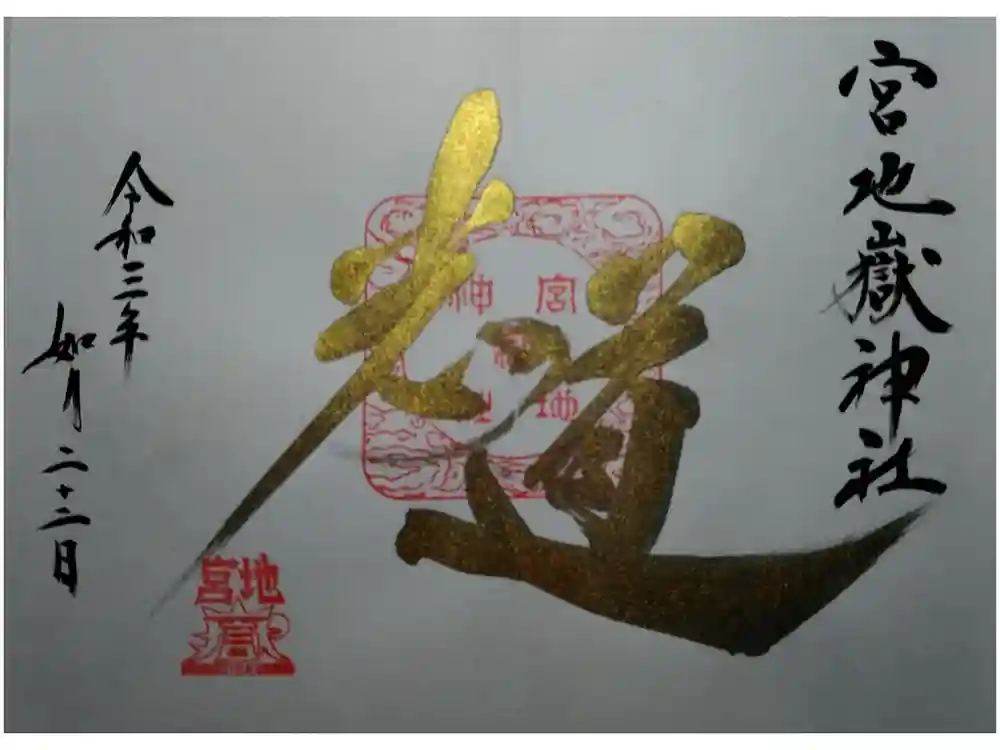 宮地嶽神社
光道
令和三年
如月二十二日
宮地嶽神社
宮地